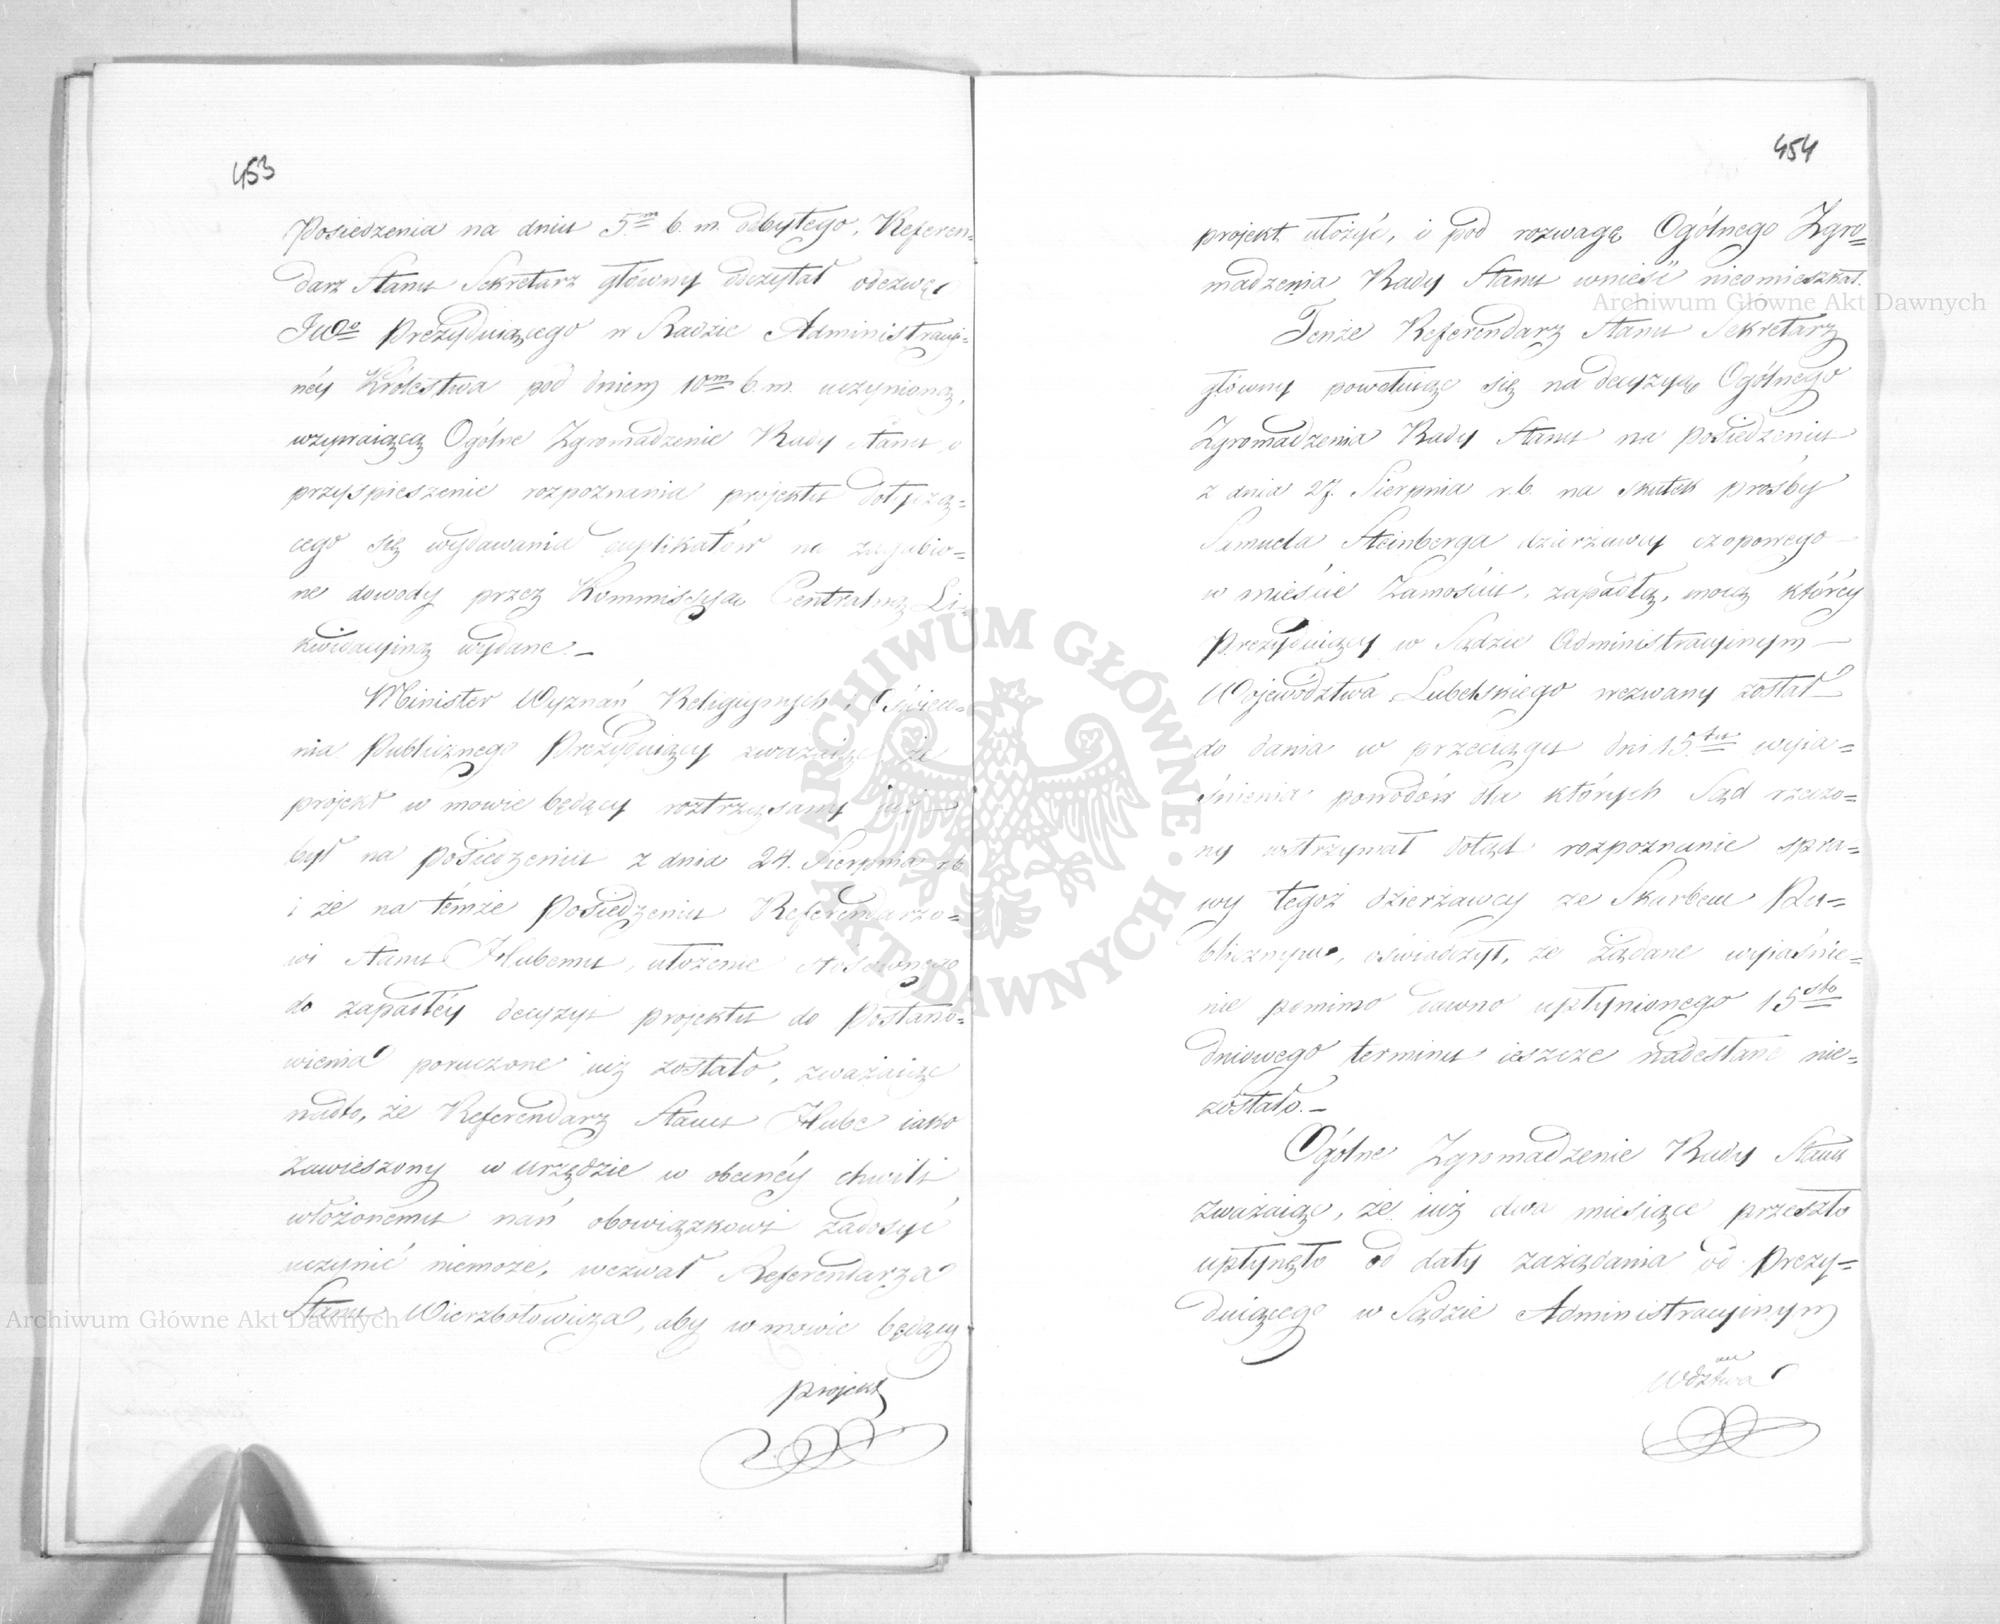 453
Posiedzenia na dniu 5m b. m. odbytego, Referen-
darz Stanu Sekretarz główny odczytał odezwę
Prezyduiącego w Radzie Administracyi-
néy Królestwa pod dniem 10m b. m. uczynioną,
wzywaiącą Ogólne Zgromadzenie Rady Stanu o
przyspieszenie rozpoznania projektu dotyczą-
cego się wydawania duplikatów na zagubio-
ne dowody przez Kommissyą Centralną Li-
kwidacyiną wydane. —
Minister Wyznań Religiynych i Oświece-
nia Publicznego Prezyduiący zważaiąc że
projekt w mowie będący roztrząsany już
był na posiedzeniu z dnia 24. Sierpnia r. b.
i że na témże Posiedzeniu Referendarzo-
wi Stanu Hubemu, ułożenie stosownego
do zapadłéy decyzyi projektu do Postano-
wienia poruczone iuż zostało, zważaiąc
nadto, że Referendarz Stanu Hube iako
zawieszony w urzędzie w obecnéy chwili
włożonemu nań obowiązkowi zadosyć
uczynić niemoże, wezwał Referendarza
Stanu Wierzbołowicza, aby w mowie będący
projekt
454
projekt ułożyć, i pod rozwagę Ogólnego Zgro-
madzenia Rady Stanu wnieść nieomieszkał.
Tenże Referendarz Stanu Sekretarz
główny powołuiąc się na decyzyą Ogólnego
Zgromadzenia Rady Stanu na posiedzeniu
z dnia 27. Sierpnia r. b. na skutek prosby
Samuela Steinberga dzierżawcy czopowego
w mieście Zamościu, zapadłą, mocą któréy
Prezyduiący w Sądzie Administracyinym —
Województwa Lubelskiego wezwany został
do dania w przeciągu dni 15.tu wyia-
śnienia powodów dla których Sąd rzeczo-
ny wstrzymał dotąd rozpoznanie spra-
wy tegoż dzierżawcy ze Skarbem Pu-
blicznym, oświadczył, że żądane wyiaśnie-
nie pomimo dawno upłynionego 15sto
dniowego terminu ieszcze nadesłane nie-
zostało. —
Ogólne Zgromadzenie Rady Stanu
zważaiąc, że iuż dwa miesiące przeszło
upłynęło od daty zażądania od Prezy-
duiącego w Sądzie Administracyinym
Wdztwa
Archiwum Główne Akt Dawnych
Archiwum Główne Akt Dawnych
ARCHIWUM GŁÓWNE · AKT DAWNYCH ·